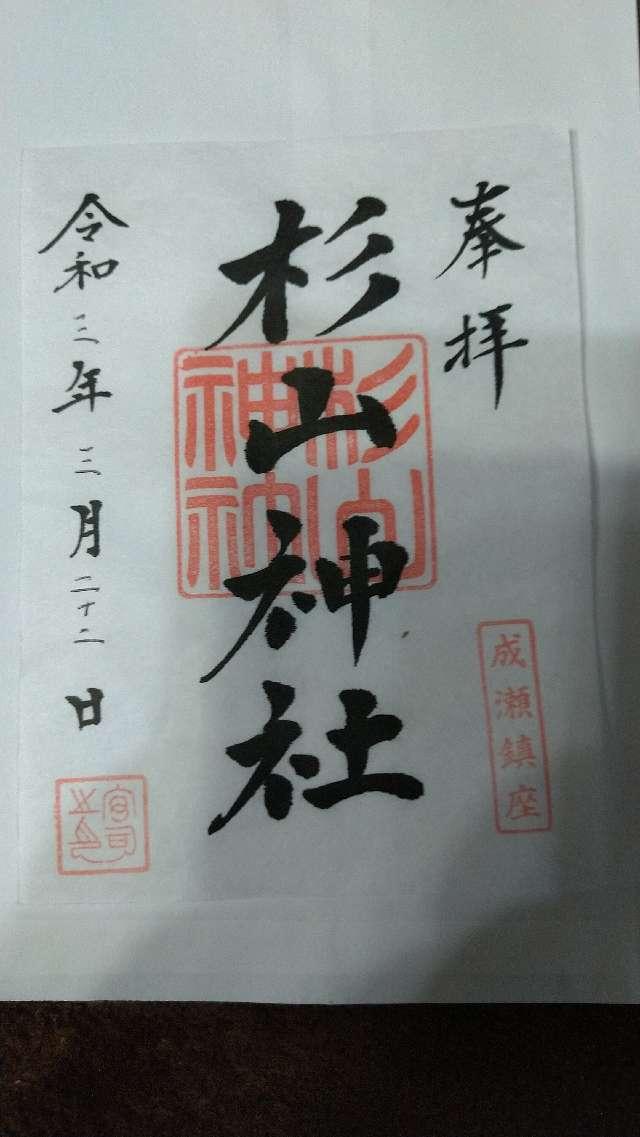 奉拝
成瀬鎮座
杉山神社
杉山神社
令和三年三月二十二日
宮司之印